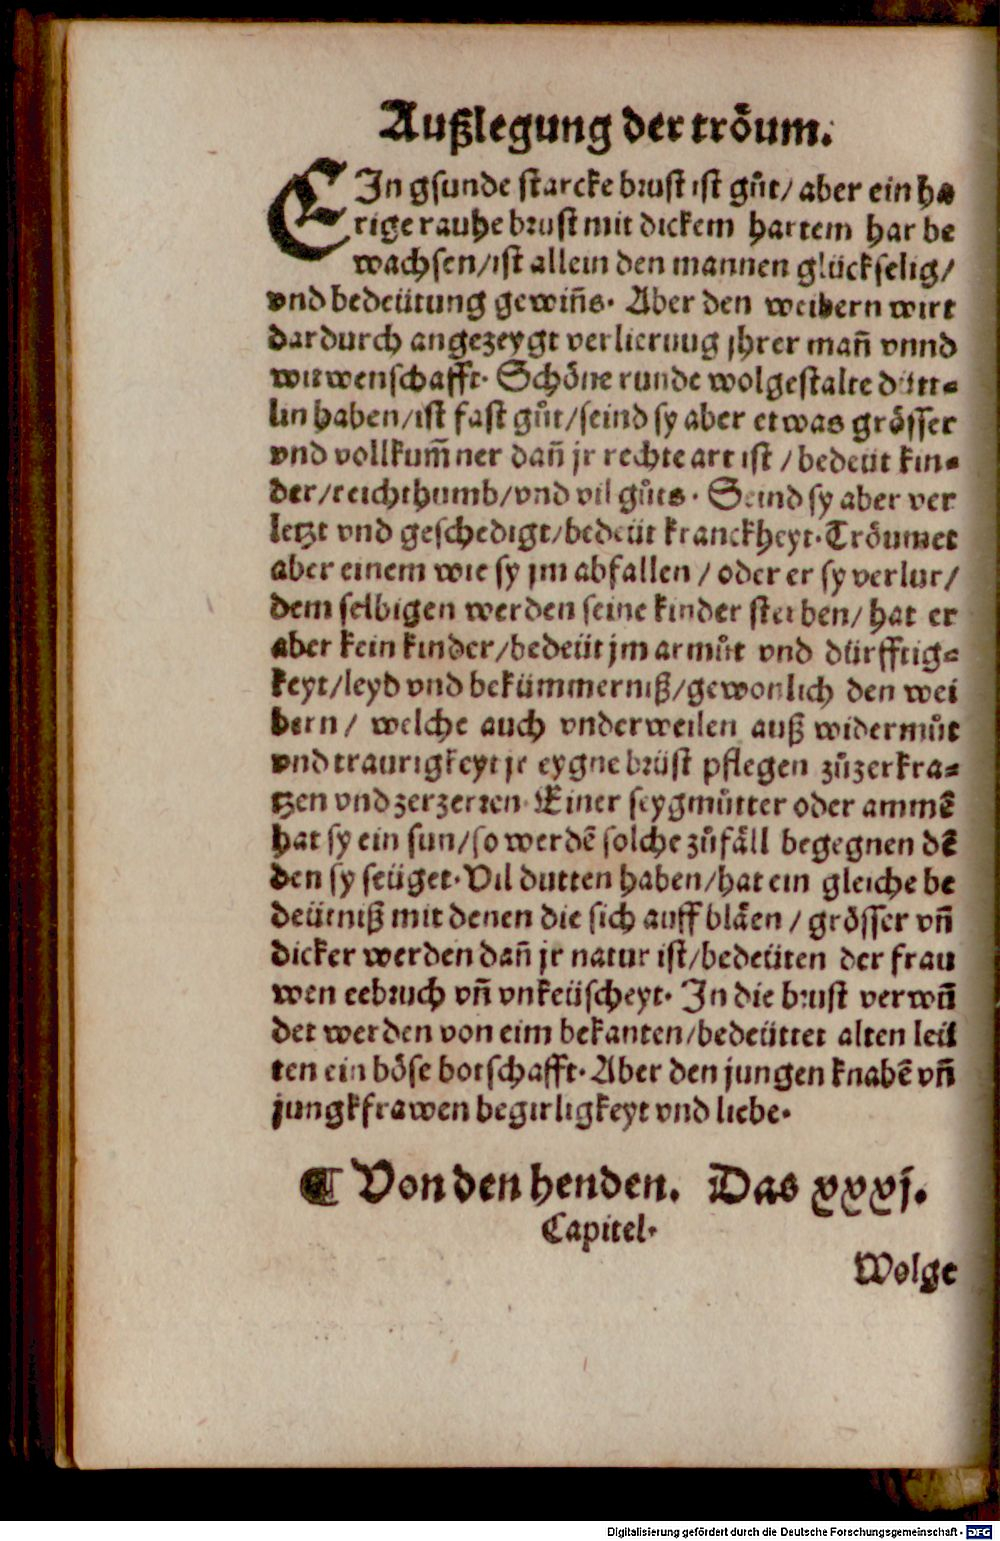 Außlegung der tröum.
EIn gsunde starcke brust ist gůt/ aber ein ha
rige rauhe brust mit dickem hartem har be
wachsen/ist allein den mannen glückselig/
vnd bedeütung gewiñs. Aber den weibern wirt
dardurch angezeygt verlierung jhrer mañ vnnd
witwenschafft. Schöne runde wolgestalte dütt-
lin haben/ist fast gůt/seind sy aber etwas grösser
vnd vollkum̃ner dañ jr rechte art ist/bedeüt kin-
der/reichthumb/vnd vil gůts. Seind sy aber ver
letzt vnd geschedigt/bedeüt kranckheyt. Tröumet
aber einem wie sy jm abfallen/oder er sy verlur/
dem selbigen werden seine kinder sterben/ hat er
aber kein kinder/bedeüt jm armůt vnd dürfftig-
keyt/leyd vnd bekümmerniß/gewonlich den wei
bern/ welche auch vnderweilen auß widermůt
vnd traurigkeyt jr eygne brüst pflegen zůzerkra-
tzen vnd zerzerren. Einer seygmůtter oder ammẽ
hat sy ein sun/so werdẽ solche zůfäll begegnen dẽ
den sy seüget. Vil dutten haben/hat ein gleiche be
deütniß mit denen die sich auff bläen/grösser vñ
dicker werden dañ jr natur ist/bedeüten der frau
wen eebruch vñ vnkeüscheyt. In die brust verwũ
det werden von eim bekanten/bedeüttet alten leü
ten ein böse botschafft. Aber den jungen knabẽ vñ
jungkfrawen begirligkeyt vnd liebe.
¶ Von den henden. Das xxxj.
Capitel.
Wolge
Digitalisierung gefördert durch die Deutsche Forschungsgemeinschaft - DFG